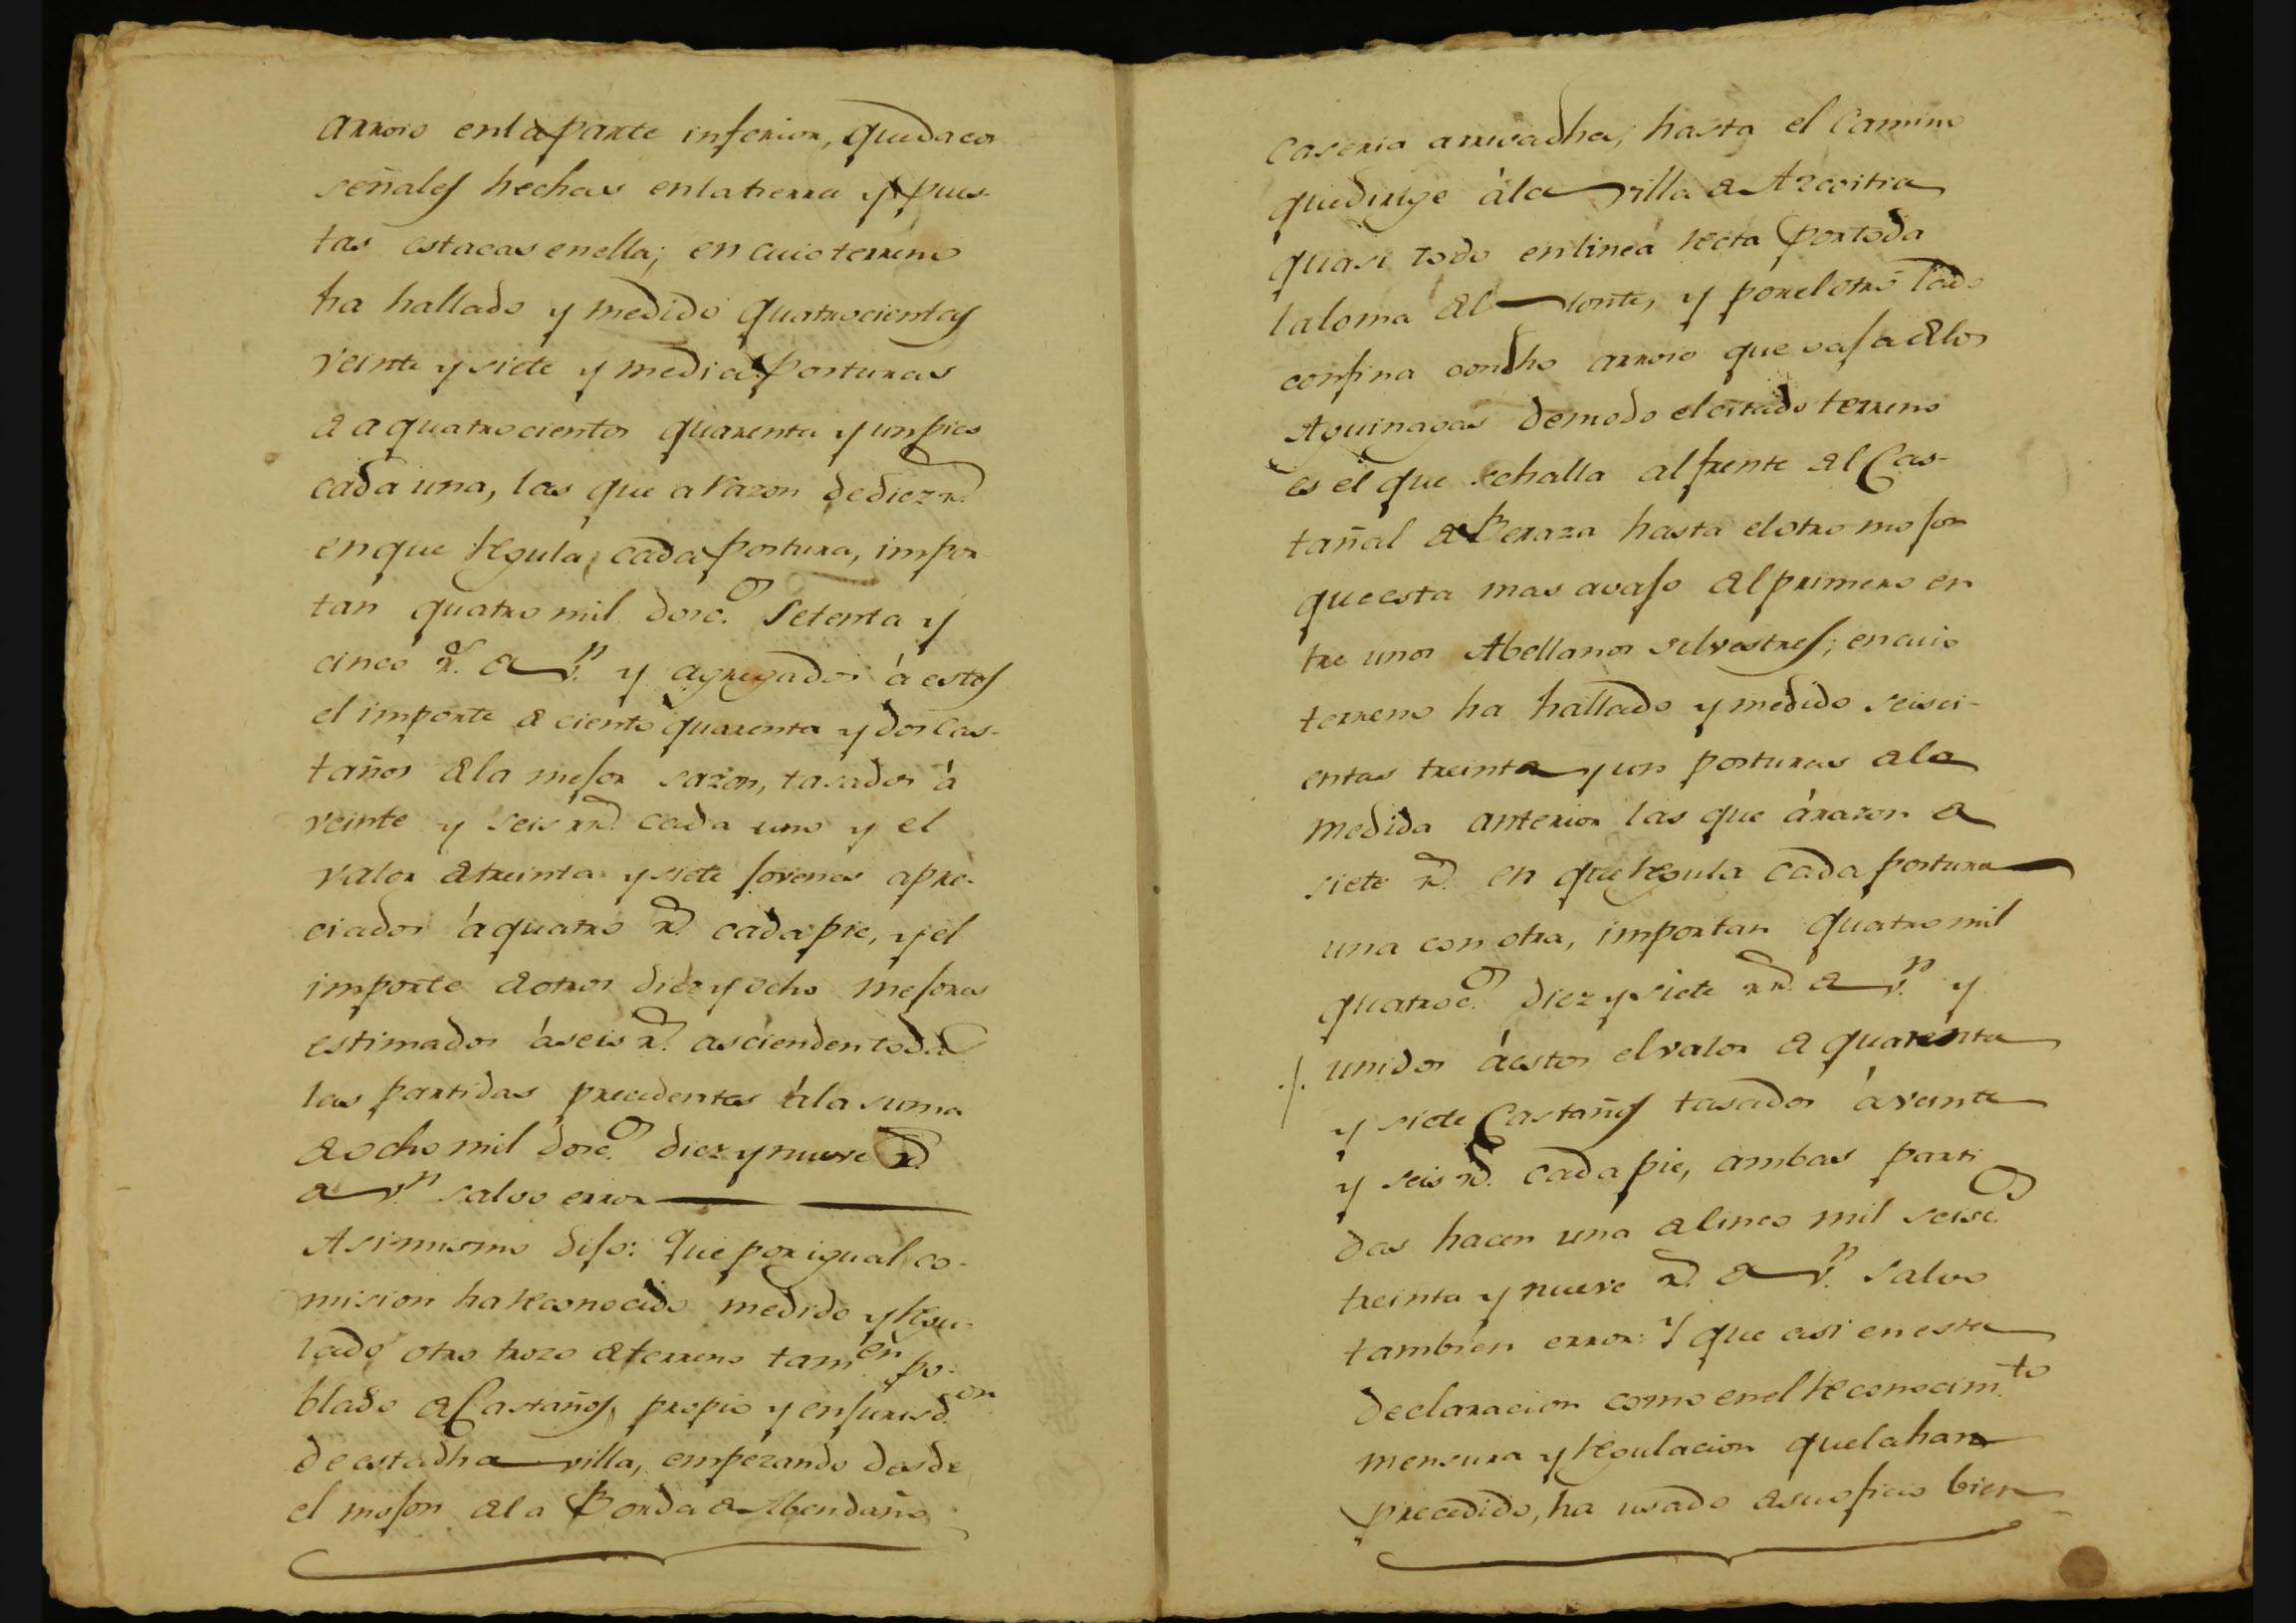 arroio enlaparte inferior, quedacon
señales hechas enlatierra y pues-
tas estacas enella; en cuio terreno
ha hallado y medido quatrocientas
veinte y siete y media posturas
de a quatrocientos quarenta y un pies
cada una, las que a razon de diez r.s
enque regula cada postura, impor-
tan quatro mil dosc.s setenta y
cinco r.s de v.n y agregados á estos
el importe de ciento quarenta y dos Cas-
taños de la mejor sazon, tasados á
veinte y seis rr.s cada uno y el
valor de treinta y siete jovenes apre-
ciados á quatro r.s cada pie, y el
importe de otros diez y ocho mejores
estimados á seis r.s ascienden todas
las partidas precedentes á la suma
de ocho mil dosc.s diez y nueve r.s
de v.n salvo error
Asimismo dijo: Que por igual co-
mision ha reconocido medido y regu-
lado otro trozo de terreno tam.en po-
blado de Castaños, propio y en jurisd.on
de esta dha villa, empezando desde
el mojon de la Borda de Abendaño
caseria arrivadha, hasta el Camino
que dirige á la villa de Azcoitia
quasi todo en linea recta por toda
la loma del Monte, y por el otro lado
confina con dho arroio que vaja de los
Aguinagas demodo el citado terreno
es el que se halla al frente del Cas-
tañal de Beraza hasta el otro mojon
que esta mas avajo del primero en
tre unos Abellanos silvestres; en cuio
terreno ha hallado y medido seisci-
entas treinta y un posturas de la
medida anterior las que á razon de
siete r.s en que regula cada postura
una con otra, importan quatro mil
quatroc.s diez y siete rr.s de v.n y
./. unidos á estos el valor de quarenta
y siete Castaños tasados á veinte
y seis r.s cada pie, ambas parti
das hacen una de cinco mil seisc.s
treinta y nueve r.s de v.n salvo
tambien error: Y que asi en esta
declaracion como en el reconocim.to
mensura y regulacion que la han
precedido, ha usado de su oficio bien